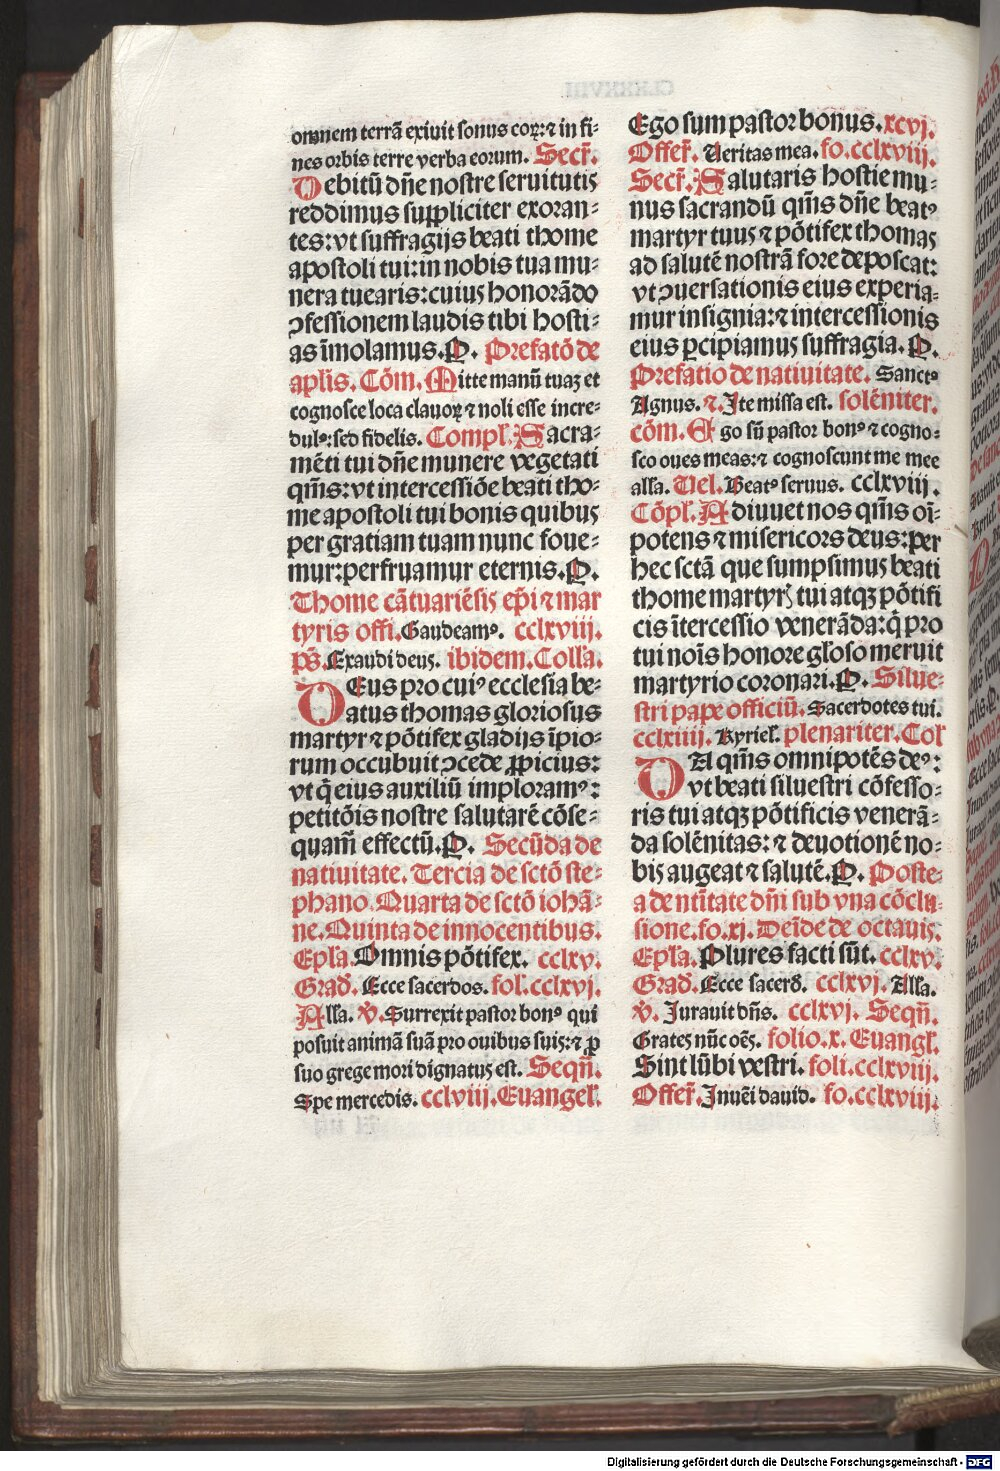 omnem terrã exiuit sonus coꝝ:⁊ in fi⸗
nes orbis terre verba eorum. Secř.
Debitũ dñe nostre seruitutis
reddimus suppliciter exoran⸗
tes:vt suffragijs beati thome
apostoli tui:in nobis tua mu⸗
nera tuearis:cuius honorãdo
ↄfessionem laudis tibi hosti⸗
as ĩmolamus.P. Prefatõ de
aplis. Cõm. Mitte manũ tuaꝫ et
cognosce loca clauoꝝ ⁊ noli esse incre⸗
dulꝰ:sed fidelis. Compl. Sacra⸗
mẽti tui dñe munere vegetati
qm̃s:vt intercessiõe beati tho⸗
me apostoli tui bonis quibus
per gratiam tuam nunc foue⸗
mur:perfruamur eternis.P.
Thome cãtuariẽsis ep̃i ⁊ mar
tyris offi. Gaudeamꝰ. cclxviij.
p̃s. Exaudi deus. ibidem. Colla.
DEus pro cuiꝰ ecclesia be⸗
atus thomas gloriosus
martyr ⁊ põtifex gladijs ĩpio⸗
rum occubuit ↄcede ꝓpicius:
vt q̃ eius auxiliũ imploramꝰ:
petitõis nostre salutarẽ cõse⸗
quam̃ effectũ.P. Secũda de
natiuitate. Tercia de sctõ ste⸗
phano. Quarta de sctõ iohã⸗
ne. Quinta de innocentibus.
Epla. Omnis põtifex. cclxv.
Grad̃. Ecce sacerdos. fol. cclxvj.
Alla. v̾. Surrexit pastor bonꝰ qui
posuit animã suã pro ouibus suis:⁊ ꝓ
suo grege mori dignatus est. Seqñ.
Spe mercedis. cclviij. Euangel.
Ego sum pastor bonus. xcvj.
Offeř. Ueritas mea. fo. cclxviij.
Secř. Salutaris hostie mu⸗
nus sacrandũ qm̃s dñe beatꝰ
martyr tuus ⁊ põtifex thomas
ad salutẽ nostrã fore deposcat:
vt ↄuersationis eius experia⸗
mur insignia:⁊ intercessionis
eius ꝑcipiamus suffragia.P.
Prefatio de natiuitate. Sanctꝰ
Agnus. ⁊. Ite missa est. solẽniter.
cõm. Ego sũ pastor bonꝰ ⁊ cogno⸗
sco oues meas:⁊ cognoscunt me mee
alla. Uel. Beatꝰ seruus. cclxviij.
Cõpl. Adiuuet nos qm̃s oĩ⸗
potens ⁊ misericors deus:per
hec sctã que sumpsimus beati
thome martyrꝭ tui atqꝫ põtifi
cis ĩtercessio venerãda:q̃ pro
tui noĩs honore gloso meruit
martyrio coronari.P. Silue⸗
stri pape officiũ. Sacerdotes tui.
cclxiiij. Kyriel. plenariter. Col
DA qm̃s omnipotẽs deꝰ:
vt beati siluestri cõfesso⸗
ris tui atqꝫ põtificis venerã⸗
da solẽnitas:⁊ deuotionẽ no⸗
bis augeat ⁊ salutẽ.P. Poste⸗
a de ntĩtate dñi sub vna cõclu⸗
sione. fo. xj. Deĩde de octauis.
Epla. Plures facti sũt. cclxv.
Grad̃. Ecce sacerd̃. cclxvj. Alla.
v̾. Jurauit dñs. cclxvj. Seqñ.
Grates nũc oẽs. folio. x. Euangl.
Sint lũbi vestri. foli. cclxviij.
Offeř. Inuẽi dauid. fo. cclxviij.
Digitalisierung gefördert durch die Deutsche Forschungsgemeinschaft - DFG